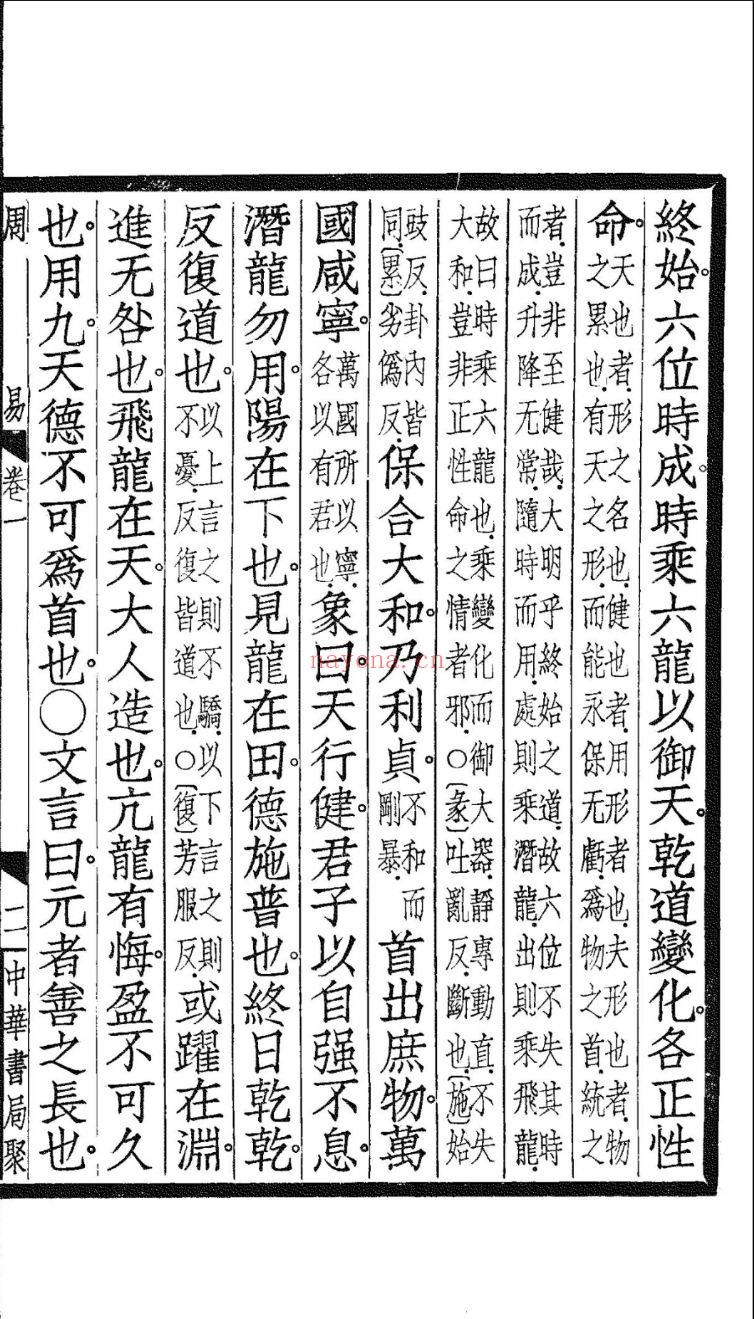 終始。六位時成。時乘六龍以御天。乾道變化。各正性
命。天也者.形之名也.健也者.用形者也.夫形也者.物之累也.有天之形.而能永保无虧.爲物之首.統之
者.豈非至健哉.大明乎終始之道.故六位不失其時而成.升降无常.隨時而用.處則乘潛龍.出則乘飛龍.
故曰時乘六龍也.乘變化而御大器.靜專動直.不失大和.豈非正性命之情者邪.○〔彖〕吐亂反.斷也.〔施〕始
豉反.卦內皆同.〔累〕劣僞反.保合大和。乃利貞。不和而剛暴.首出庶物。萬
國咸寧。萬國所以寧.各以有君也.象曰。天行健。君子以自强不息。
潛龍勿用。陽在下也。見龍在田。德施普也。終日乾乾。
反復道也。以上言之則不驕.以下言之則不憂.反復皆道也.○〔復〕芳服反.或躍在淵。
進无咎也。飛龍在天。大人造也。亢龍有悔。盈不可久
也。用九天德不可爲首也。○文言曰。元者善之長也。
周易 卷一 二 中華書局聚
nayona.cn